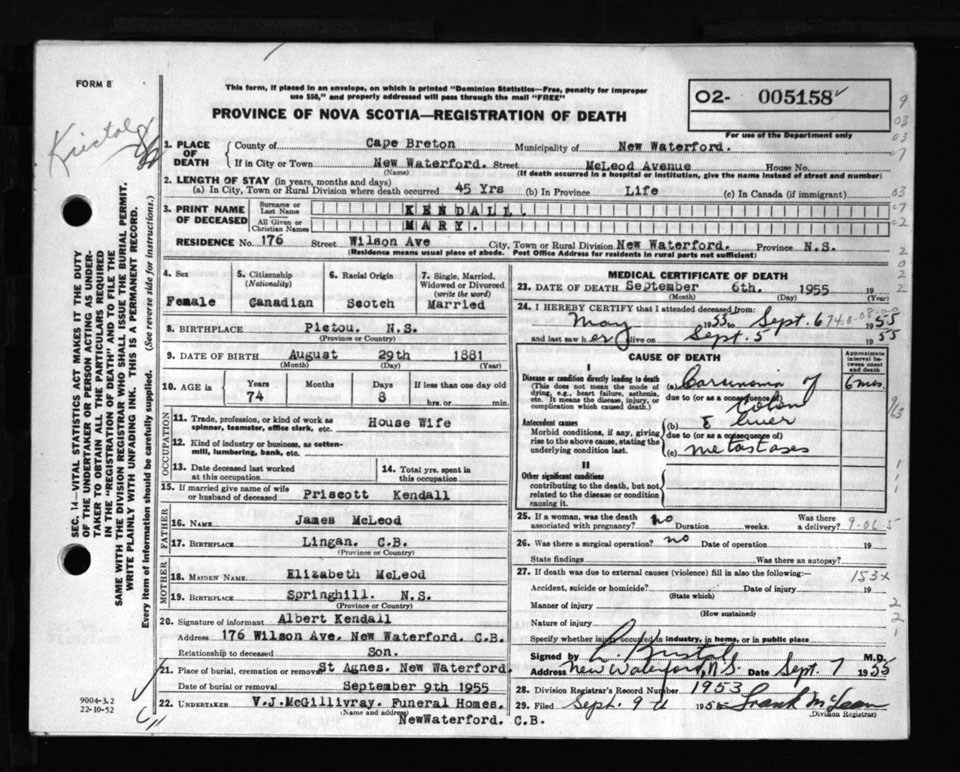 FORM 8
This form, if placed in an envelope, on which is printed "Dominion Statistics—Free, penalty for improper
use $50," and properly addressed will pass through the mail "FREE"
O2- 005158
For use of the Department only
PROVINCE OF NOVA SCOTIA—REGISTRATION OF DEATH
1. PLACE OF DEATH
County of Cape Breton Municipality of New Waterford.
If in City or Town New Waterford. Street McLeod Avenue House No.
(Name) (If death occurred in a hospital or institution, give the name instead of street and number)
2. LENGTH OF STAY (in years, months and days)
(a) In City, Town or Rural Division where death occurred 45 Yrs (b) In Province Life (c) In Canada (if immigrant)
3. PRINT NAME OF DECEASED
Surname or Last Name KENDALL.
All Given or Christian Names MARY.
RESIDENCE No. 176 Street Wilson Ave City, Town or Rural Division New Waterford. Province N.S.
(Residence means usual place of abode. Post Office Address for residents in rural parts not sufficient)
4. Sex
Female
5. Citizenship
(Nationality)
Canadian
6. Racial Origin
Scotch
7. Single, Married, Widowed or Divorced
(write the word)
Married
8. BIRTHPLACE Pictou. N.S.
(Province or Country)
9. DATE OF BIRTH August 29th 1881
(Month) (Day) (Year)
10. AGE in Years Months Days If less than one day old
74 8 hrs. or min.
OCCUPATION
11. Trade, profession, or kind of work as spinner, teamster, office clerk, etc. House Wife
12. Kind of industry or business, as cotton-mill, lumbering, bank, etc.
13. Date deceased last worked at this occupation
14. Total yrs. spent in this occupation
15. If married give name of wife or husband of deceased Priscott Kendall
FATHER
16. NAME James McLeod
17. BIRTHPLACE Lingan. C.B.
(Province or Country)
MOTHER
18. MAIDEN NAME Elizabeth McLeod
19. BIRTHPLACE Springhill. N.S.
(Province or Country)
20. Signature of informant Albert Kendall
Address 176 Wilson Ave. New Waterford. C.B.
Relationship to deceased Son.
21. Place of burial, cremation or removal St Agnes. New Waterford.
Date of burial or removal September 9th 1955
22. UNDERTAKER V.J.McGillivray. Funeral Homes.
(Name and address)
NewWaterford. C.B.
MEDICAL CERTIFICATE OF DEATH
23. DATE OF DEATH September 6th. 1955 19
(Month) (Day) (Year)
24. I HEREBY CERTIFY that I attended deceased from:
May 1955 to Sept. 6 1955
and last saw her alive on Sept. 5 1955
CAUSE OF DEATH
Approximate interval between onset and death
I
Disease or condition directly leading to death
(This does not mean the mode of dying, e.g., heart failure, asthenia, etc. It means the disease, injury, or complication which caused death.)
(a) Carcinoma of 6 mos
due to (or as a consequence of)
Colon
Antecedent causes
Morbid conditions, if any, giving rise to the above cause, stating the underlying condition last.
(b) liver
due to (or as a consequence of)
(c) metastases
II
Other significant conditions
contributing to the death, but not related to the disease or condition causing it.
25. If a woman, was the death associated with pregnancy? no Duration weeks. Was there a delivery?
9-06-5
26. Was there a surgical operation? no Date of operation 19
State findings Was there an autopsy?
27. If death was due to external causes (violence) fill in also the following:—
153x
Accident, suicide or homicide? Date of injury 19
(State which)
Manner of injury
(How sustained)
Nature of injury
Specify whether injury occurred in industry, in home, or in public place
Signed by M.D.
Address New Waterford, N.S. Date Sept. 7 1955
28. Division Registrar's Record Number 1953
29. Filed Sept. 9th 1955
(Division Registrar)
SEC. 14—VITAL STATISTICS ACT MAKES IT THE DUTY
OF THE UNDERTAKER OR PERSON ACTING AS UNDER-
TAKER TO OBTAIN ALL THE PARTICULARS REQUIRED
IN THE "REGISTRATION OF DEATH" AND TO FILE THE
SAME WITH THE DIVISION REGISTRAR WHO SHALL ISSUE THE BURIAL PERMIT.
WRITE PLAINLY WITH UNFADING INK. THIS IS A PERMANENT RECORD.
Every item of information should be carefully supplied. (See reverse side for instructions.)
9004-3.2
22-10-52